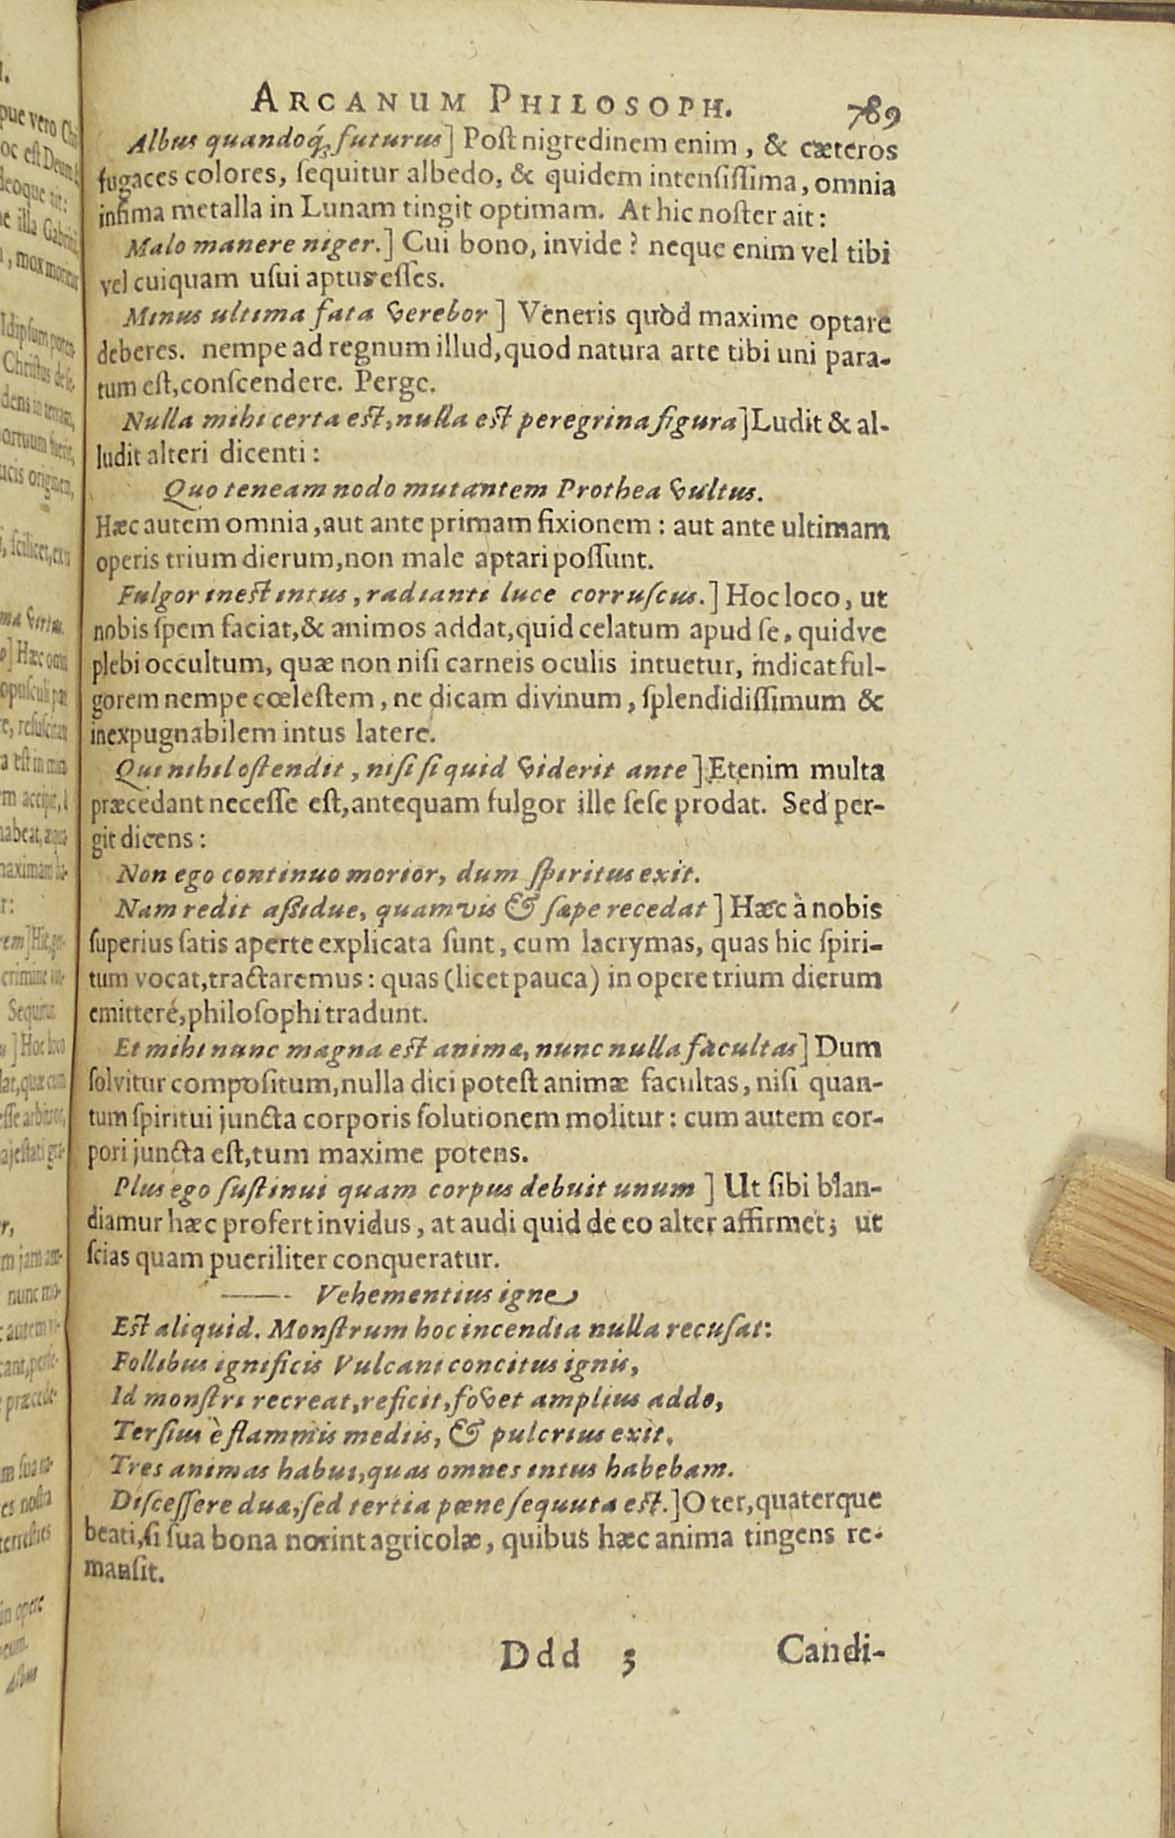 ARCANUM PHILOSOPH. 789
Albus quandoq́; futurus] Poſt nigredinem enim, & cæteros
fugaces colores, ſequitur albedo, & quidem intenſiſſima, omnia
infima metalla in Lunam tingit optimam. At hic noſter ait:
Malo manere niger.] Cui bono, invide? neque enim vel tibi
vel cuiquam uſui aptus eſſes.
Minus ultima fata verebor] Veneris quòd maxime optare
deberes. nempe ad regnum illud, quod natura arte tibi uni para-
tum eſt, conſcendere. Perge.
Nulla mihi certa eſt, nulla eſt peregrina figura] Ludit & al-
ludit alteri dicenti:
Quo teneam nodo mutantem Prothea vultus.
Hæc autem omnia, aut ante primam fixionem: aut ante ultimam
operis trium dierum, non male aptari poſſunt.
Fulgor ineſt intus, radianti luce corruſcus.] Hoc loco, ut
nobis ſpem faciat, & animos addat, quid celatum apud ſe, quidve
plebi occultum, quæ non niſi carneis oculis intuetur, indicat ful-
gorem nempe cœleſtem, ne dicam divinum, ſplendidiſſimum &
inexpugnabilem intus latere.
Qui nihil oſtendit, niſi ſi quid viderit ante] Etenim multa
præcedant neceſſe eſt, antequam fulgor ille ſeſe prodat. Sed per-
git dicens:
Non ego continuo morior, dum ſpiritus exit.
Nam redit aſſidue, quamvis & ſæpe recedat] Hæc à nobis
ſuperius ſatis aperte explicata ſunt, cum lacrymas, quas hic ſpiri-
tum vocat, tractaremus: quas (licet pauca) in opere trium dierum
emittere, philoſophi tradunt.
Et mihi nunc magna eſt animæ, nunc nulla facultas] Dum
ſolvitur compoſitum, nulla dici poteſt animæ facultas, niſi quan-
tum ſpiritui juncta corporis ſolutionem molitur: cum autem cor-
pori juncta eſt, tum maxime potens.
Plus ego ſuſtinui quam corpus debuit unum] Ut ſibi blan-
diamur hæc profert invidus, at audi quid de eo alter affirmet; ut
ſcias quam pueriliter conqueratur.
—— Vehementius igne
Eſt aliquid. Monſtrum hoc incendia nulla recuſat:
Follibus ignificis Vulcani concitus ignis,
Id monſtri recreat, reficit, fovet amplius addo,
Terſius è flammis mediis, & pulcrius exit.
Tres animas habui, quas omnes intus habebam.
Diſceſſere duæ, ſed tertia pœne ſequuta eſt.] O ter, quaterque
beati, ſi ſua bona norint agricolæ, quibus hæc anima tingens re-
manſit.
Ddd 3 Candi-